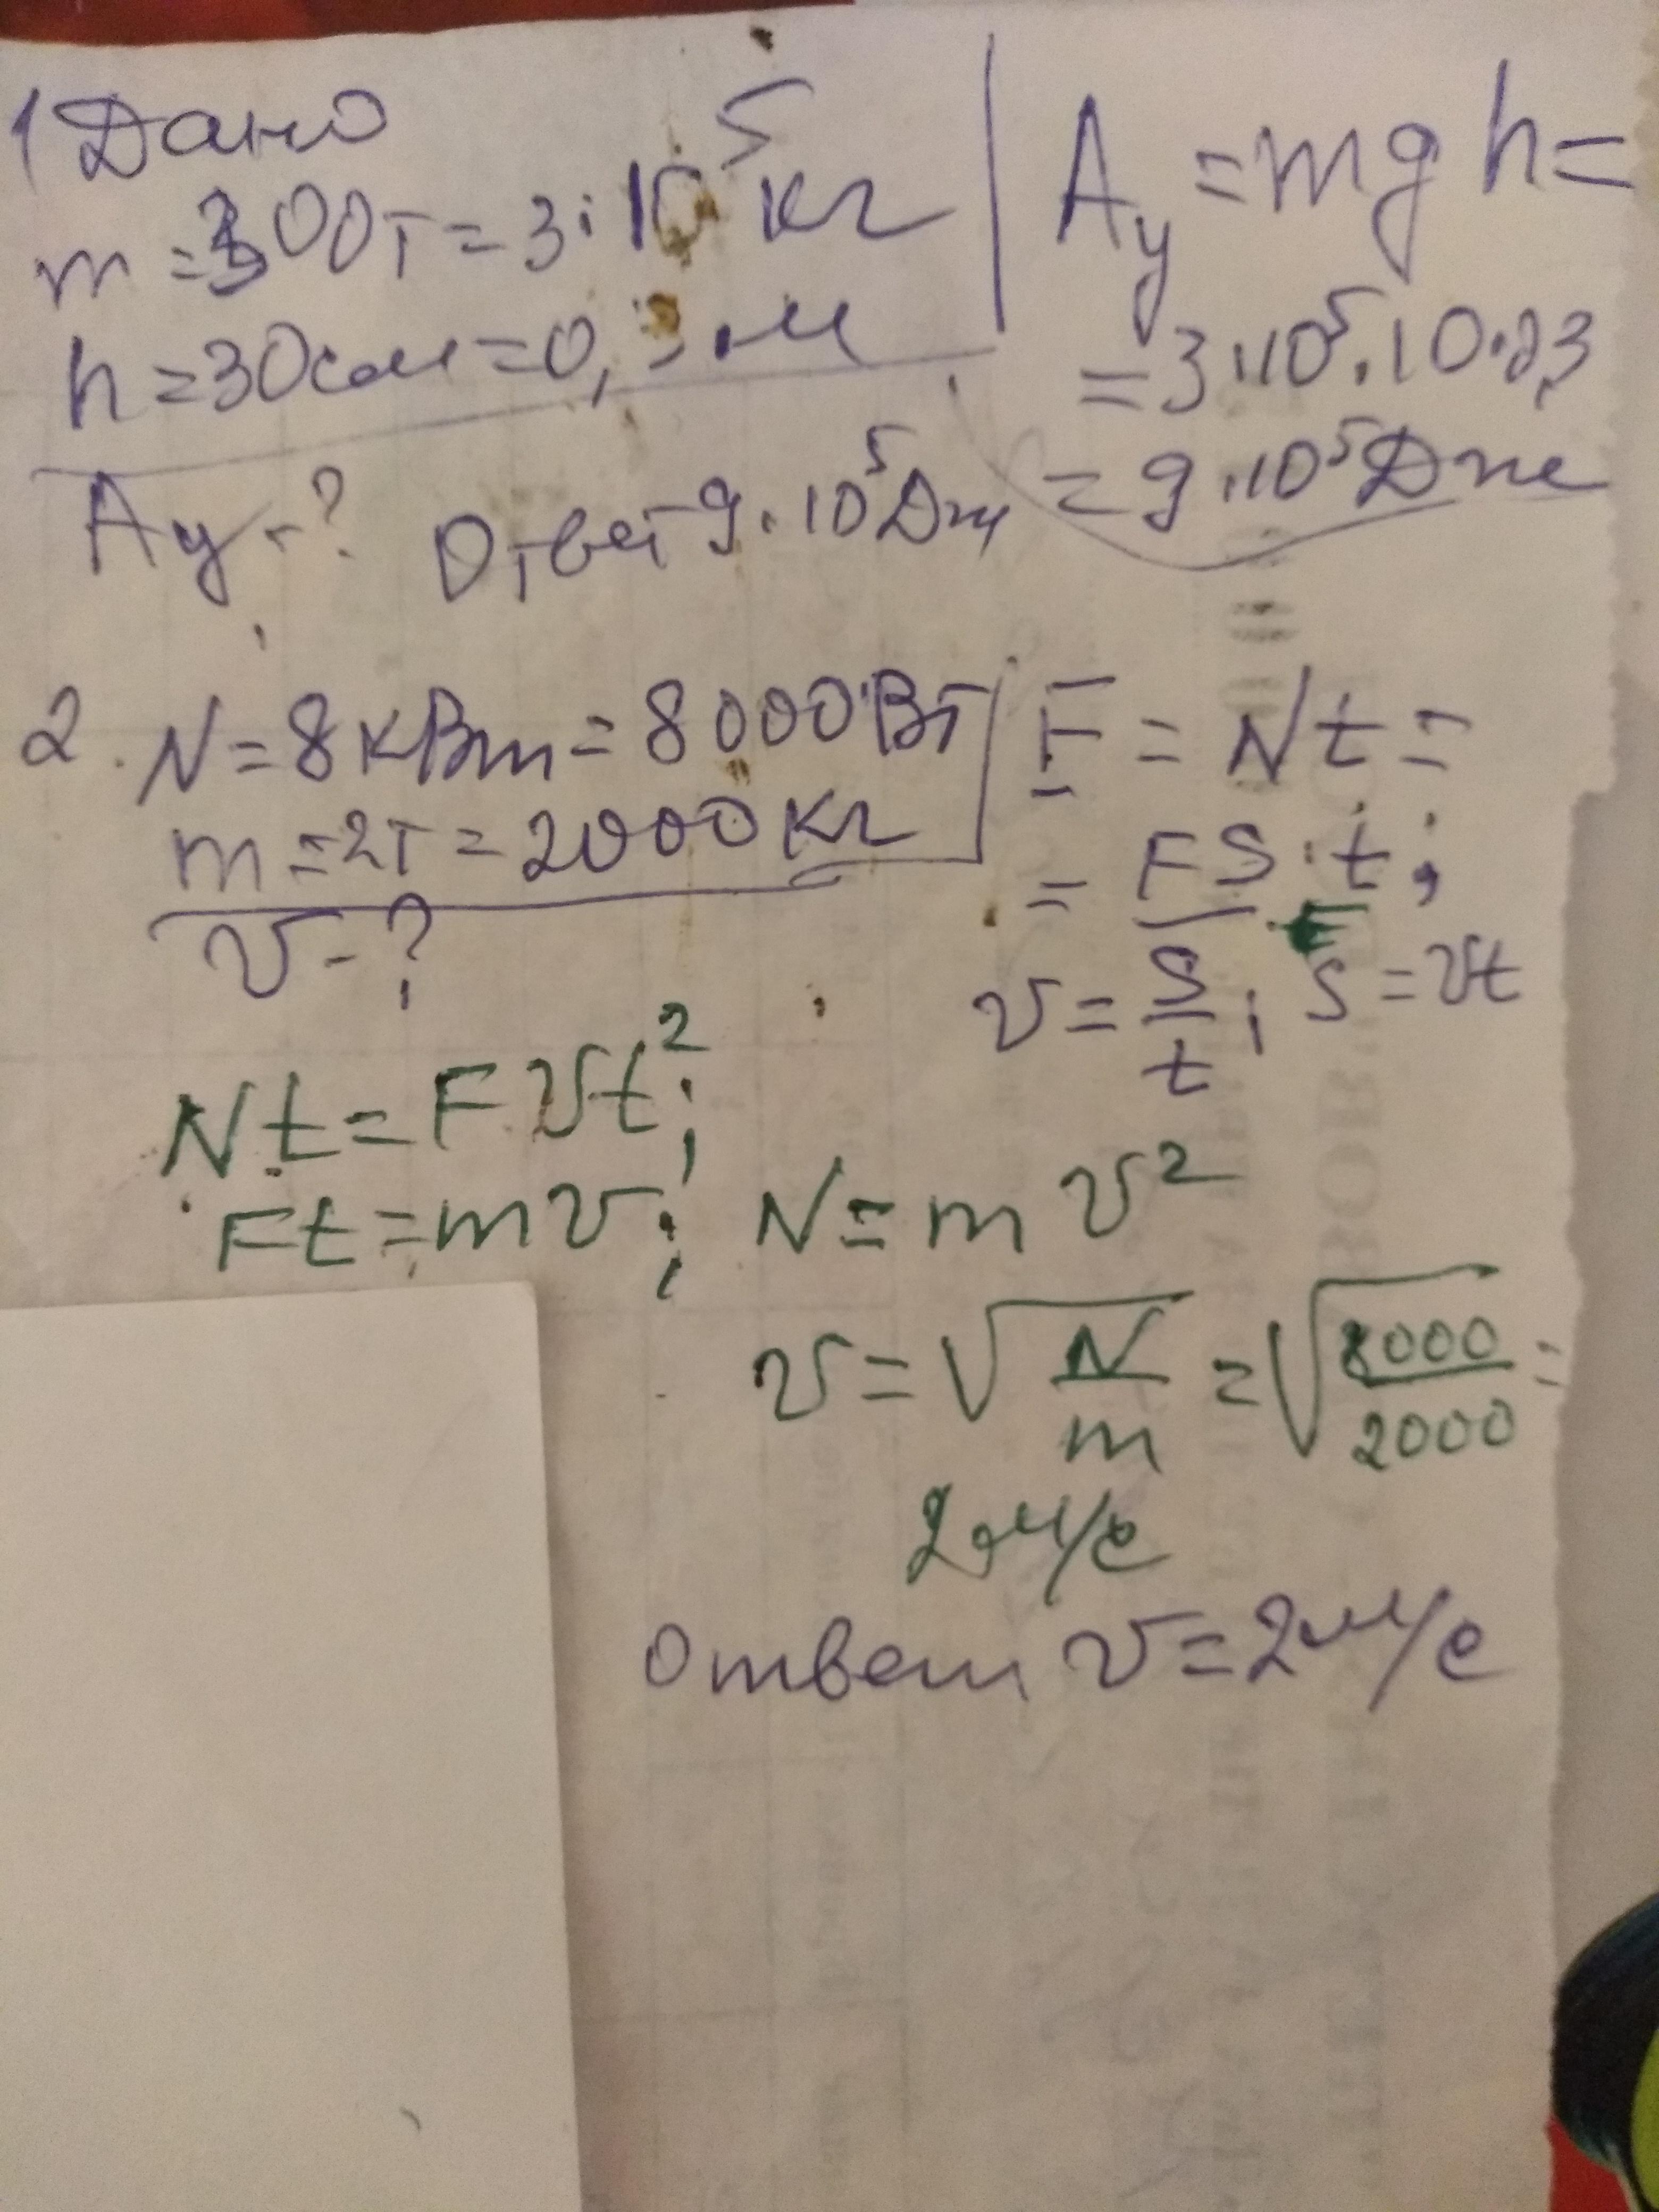 1 Дано
m = 300т = 3·10⁵ кг
h = 30см = 0,3 м
Aу - ?
Aу = mgh =
= 3·10⁵·10·0,3
= 9·10⁵ Дж
Ответ 9·10⁵ Дж
2. N = 8 кВт = 8000 Вт
m = 2т = 2000 кг
v - ?
= Nt =
= FS·t;
v = S/t; S = vt
Nt = Fvt²;
Ft = mv; N = mv²
v = √N/m = √8000/2000 =
2 м/с
Ответ v = 2 м/с